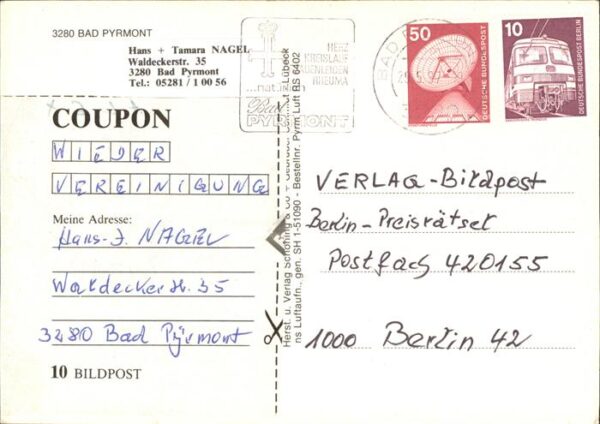 3280 BAD PYRMONT
Hans + Tamara NAGEL
Waldeckerstr. 35
3280 Bad Pyrmont
Tel.: 05281 / 1 00 56
HERZ
KREISLAUF
FRAUENLEIDEN
RHEUMA
...nat
Bad
PYRMONT
BAD
50
DEUTSCHE BUNDESPOST
10
DEUTSCHE BUNDESPOST BERLIN
COUPON
WIEDER
VEREINIGUNG
Meine Adresse:
Hans-J. NAGEL
Waldeckerstr. 35
3280 Bad Pyrmont
10 BILDPOST
Herst. u. Verlag Schöning & Co + Lübeck
ns Luftaufn., gen. SH 1-51090 - Bestellnr. Pyrm Luft BS 6402
VERLAG-Bildpost
Berlin-Preisrätsel
Postfach 420155
1000 Berlin 42